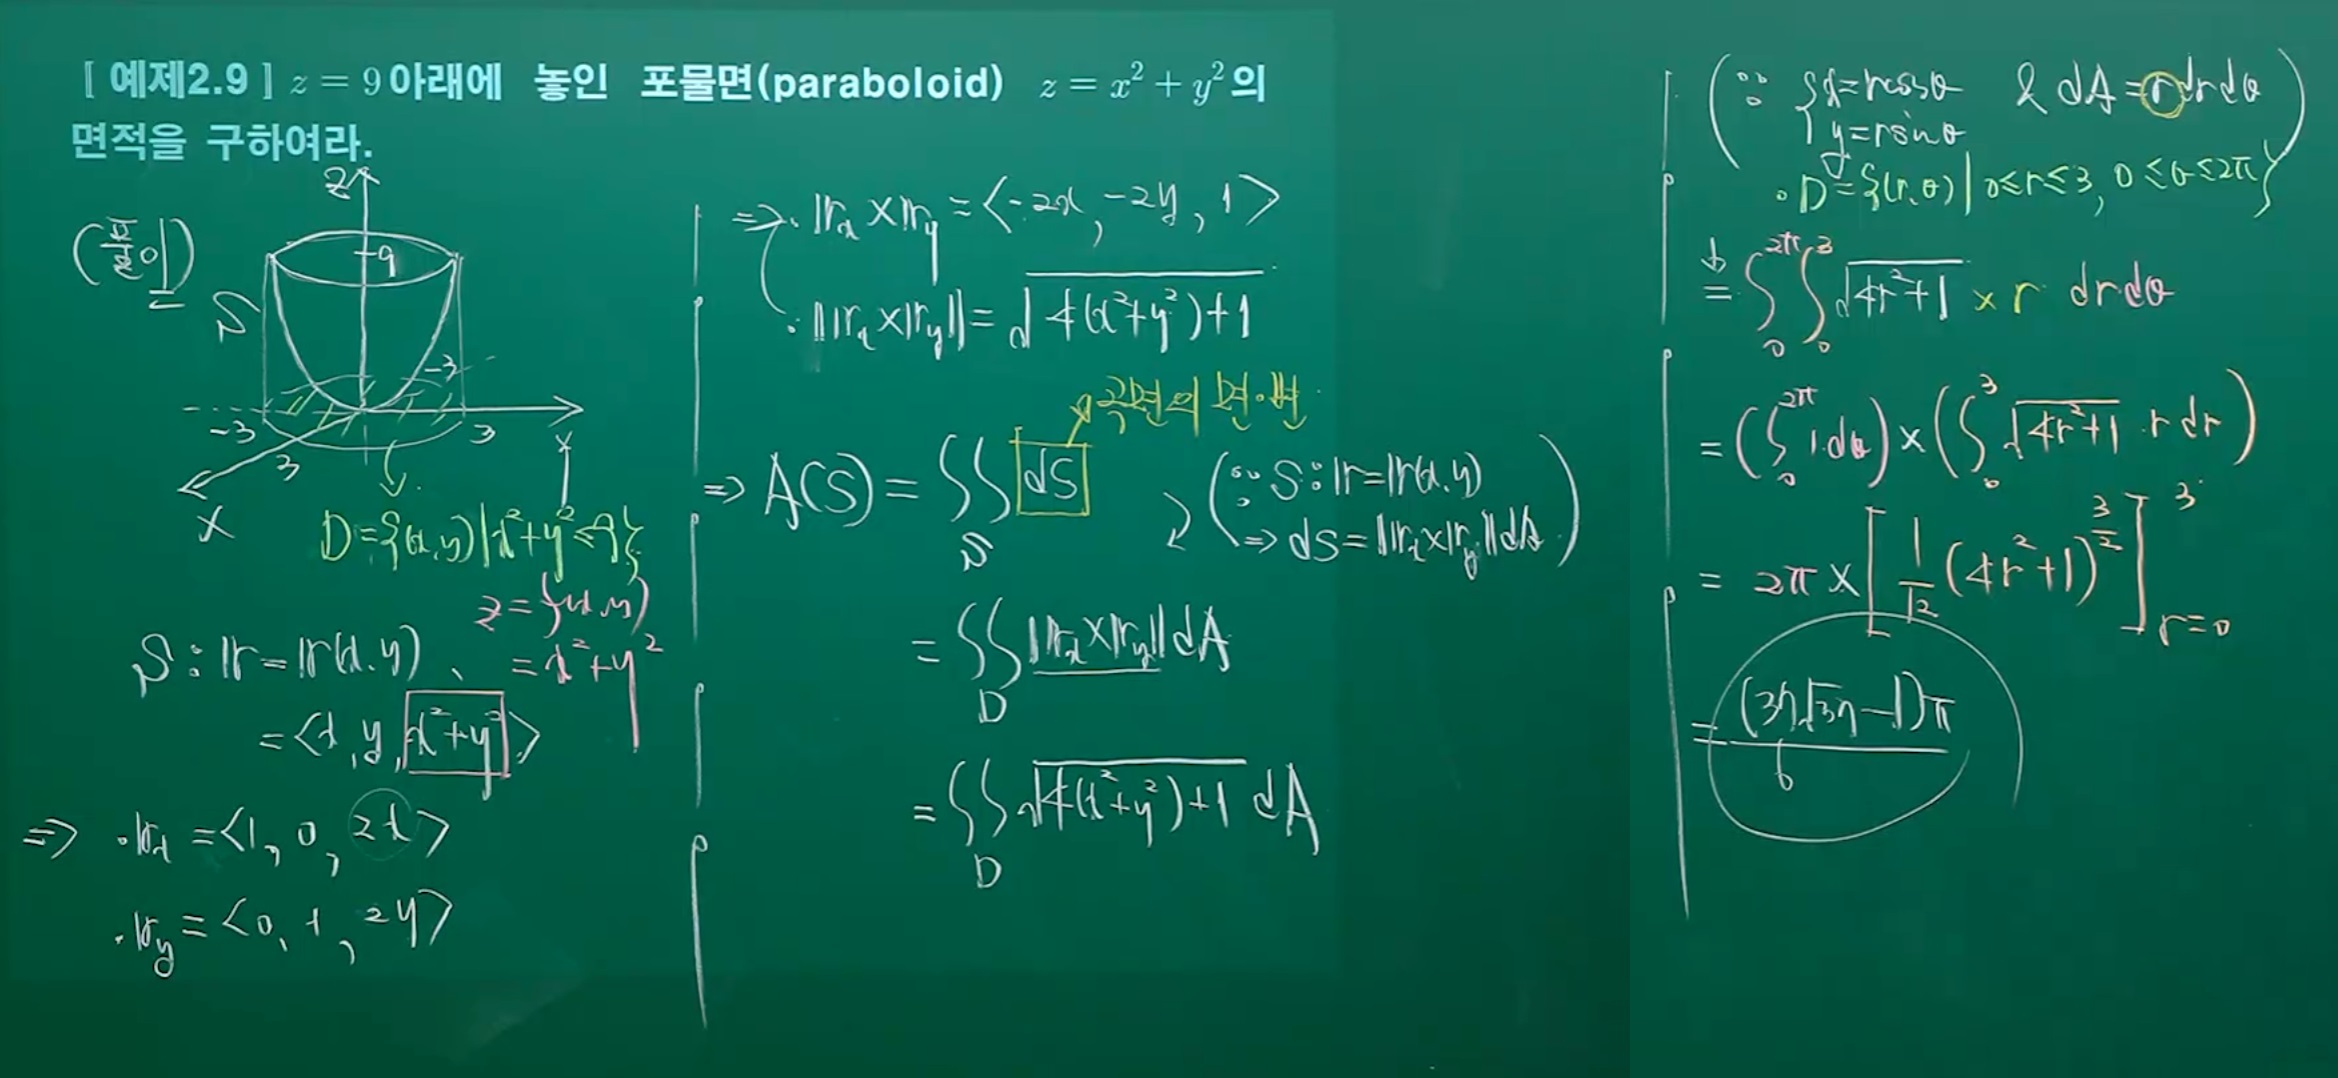 [ 예제2.9 ] z = 9아래에 놓인 포물면(paraboloid) z = x² + y²의
면적을 구하여라.
(풀이)
z
9
S
-3
-3
3
3
y
x
D={(x,y)|x²+y²≤9}
z=f(x,y)
=x²+y²
S: r=r(x,y),
=<x, y, x²+y²>
⇒ ·rₓ =<1, 0, 2x>
·r_y = <0, 1, 2y>
⇒ ·rₓ×r_y = <-2x, -2y, 1>
·||rₓ×r_y||=√(4(x²+y²)+1)
곡면의 면·벡
⇒ A(S) = ∬_S dS
(∵ S: r=r(x,y)
⇒ dS=||rₓ×r_y||dA)
= ∬_D ||rₓ×r_y||dA
= ∬_D √(4(x²+y²)+1) dA
(∵ {x=rcosθ & dA=rdrdθ
y=rsinθ
·D={(r,θ)|0≤r≤3, 0≤θ≤2π})
= ∫₀^2π ∫₀³ √(4r²+1) × r drdθ
= (∫₀^2π 1·dθ)×(∫₀³ √(4r²+1)·r dr)
= 2π × [1/12 (4r²+1)^(3/2)]_{r=0}^3
= (37√37-1)π/6